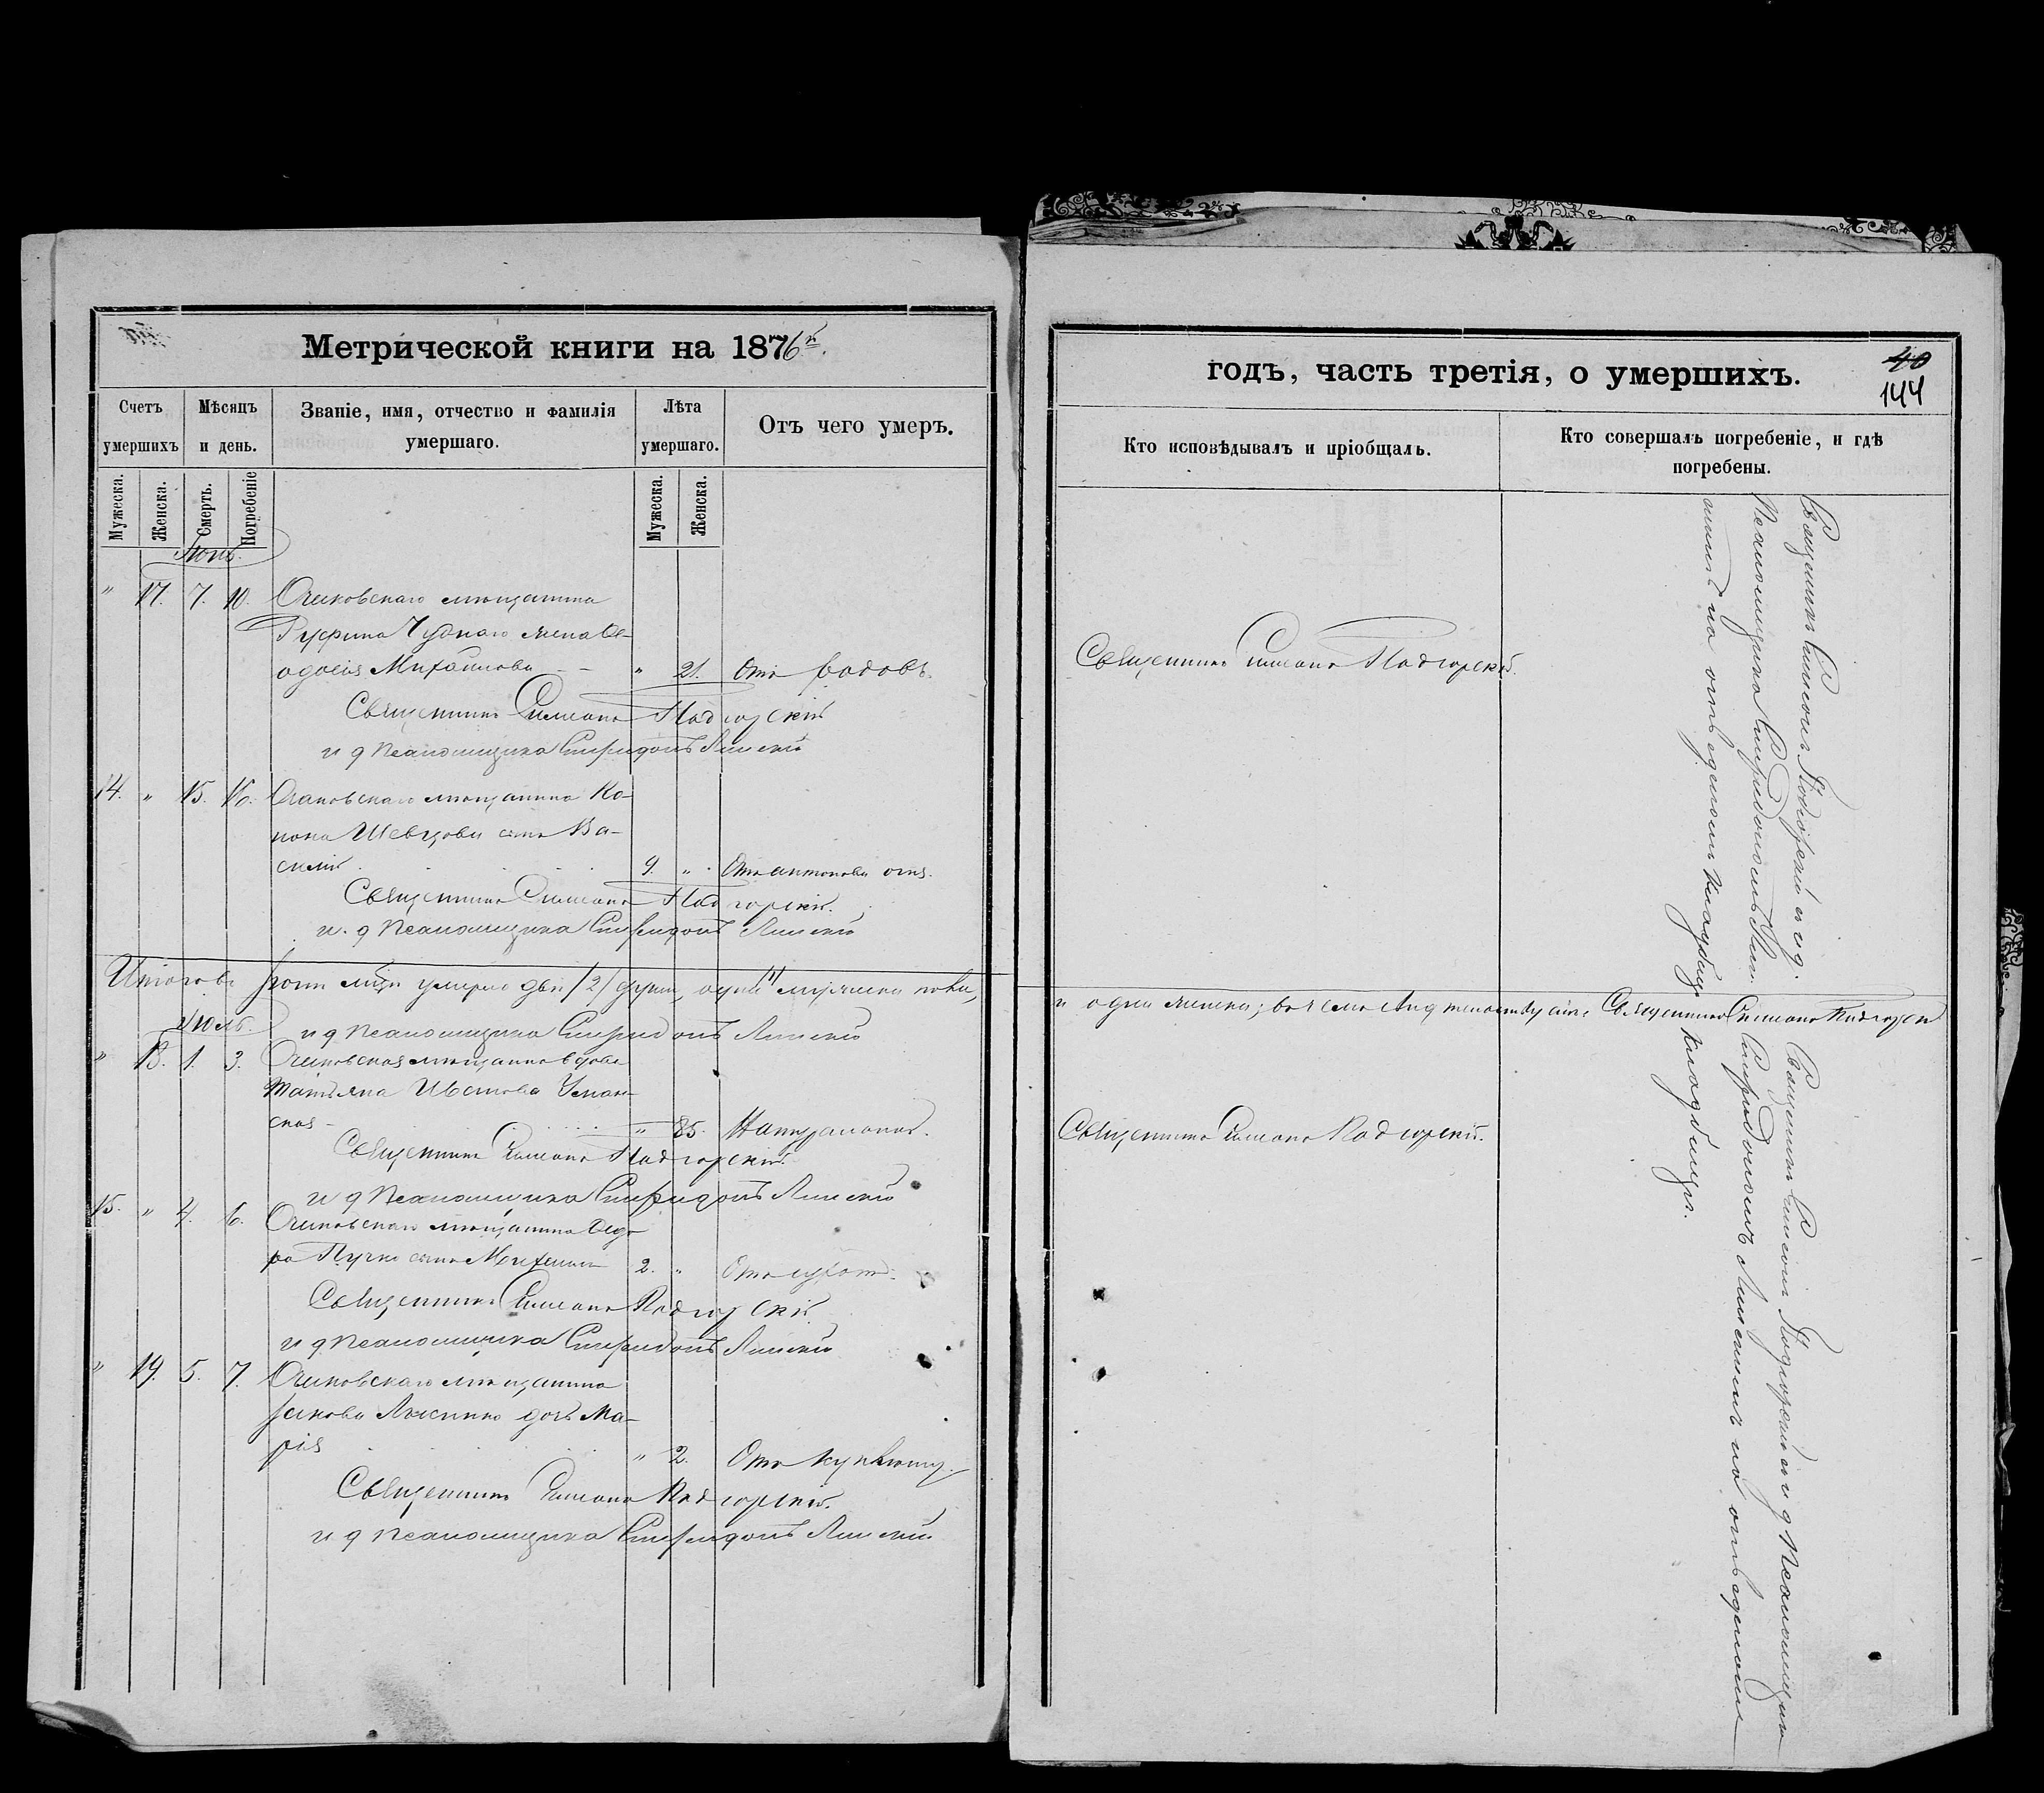 Метрической книги на 1876й
Счетъ умершихъ
Мѣсяцъ и день.
Званіе, имя, отчество и фамилія умершаго.
Лѣта умершаго.
Отъ чего умеръ.
Мужеска.
Женска.
Смерть.
Погребеніе
Мужеска.
Женска.
Іюнь.
" 17. 7. 10. Очаковскаго мѣщанина
Руфина Чуднаго жена Ѳе-
одосія Михайлова " 21. Отъ родовъ.
Священникъ Симеонъ Подгорскій
и д псаломщика Спиридонъ
14. " 15. 16. Очаковскаго мѣщанина Ко-
нона Шевцова сынъ Ва-
силій 9. " Отъ антонова огня.
Священникъ Симеонъ Подгорскій.
и. д псаломщика Спиридонъ
Итого въ Іюнѣ мцѣ умерло двѣ /2/ души, одна /1/ мужеска пола,
Іюль.
и д псаломщика Спиридонъ
" 18. 1. 3. Очаковская мѣщанка вдова
Татьяна
ская " 85. Натуральной.
Священникъ Симеонъ Подгорскій
и д псаломщика Спиридонъ
15. " 4. 6. Очаковскаго мѣщанина Ѳедо
ра сынъ 2. " Отъ сухотъ.
Священникъ Симеонъ Подгорскій.
и д псаломщика Спиридонъ
" 19. 5. 7. Очаковскаго мѣщанина
Іакова дочь Ма-
рія " 2. Отъ
Священникъ Симеонъ Подгорскій.
и д псаломщика Спиридонъ
годъ, часть третія, о умершихъ.
40
144
Кто исповѣдывалъ и пріобщалъ.
Кто совершалъ погребеніе, и гдѣ погребены.
Священникъ Симеонъ Подгорскій.
Священникъ Симеонъ Подгорскій и и д.
Псаломщика Спиридономъ
на отведенномъ кладбищѣ.
и одна женска; въ чемъ Священникъ Симеонъ Подгорскій
Священникъ Симеонъ Подгорскій.
Священникъ Симеонъ Подгорскій и и д Псаломщика
Спиридономъ на отведенномъ
кладбищѣ.